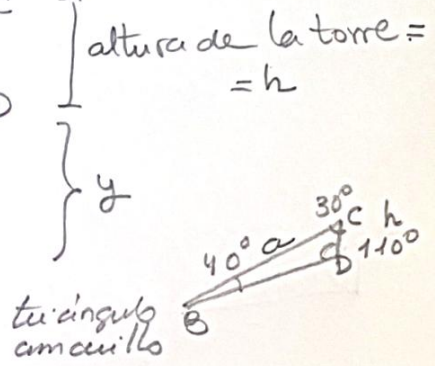 altura de la torre =
= h
y
30° C h
40° a
D 110°
triángulo B
amarillo